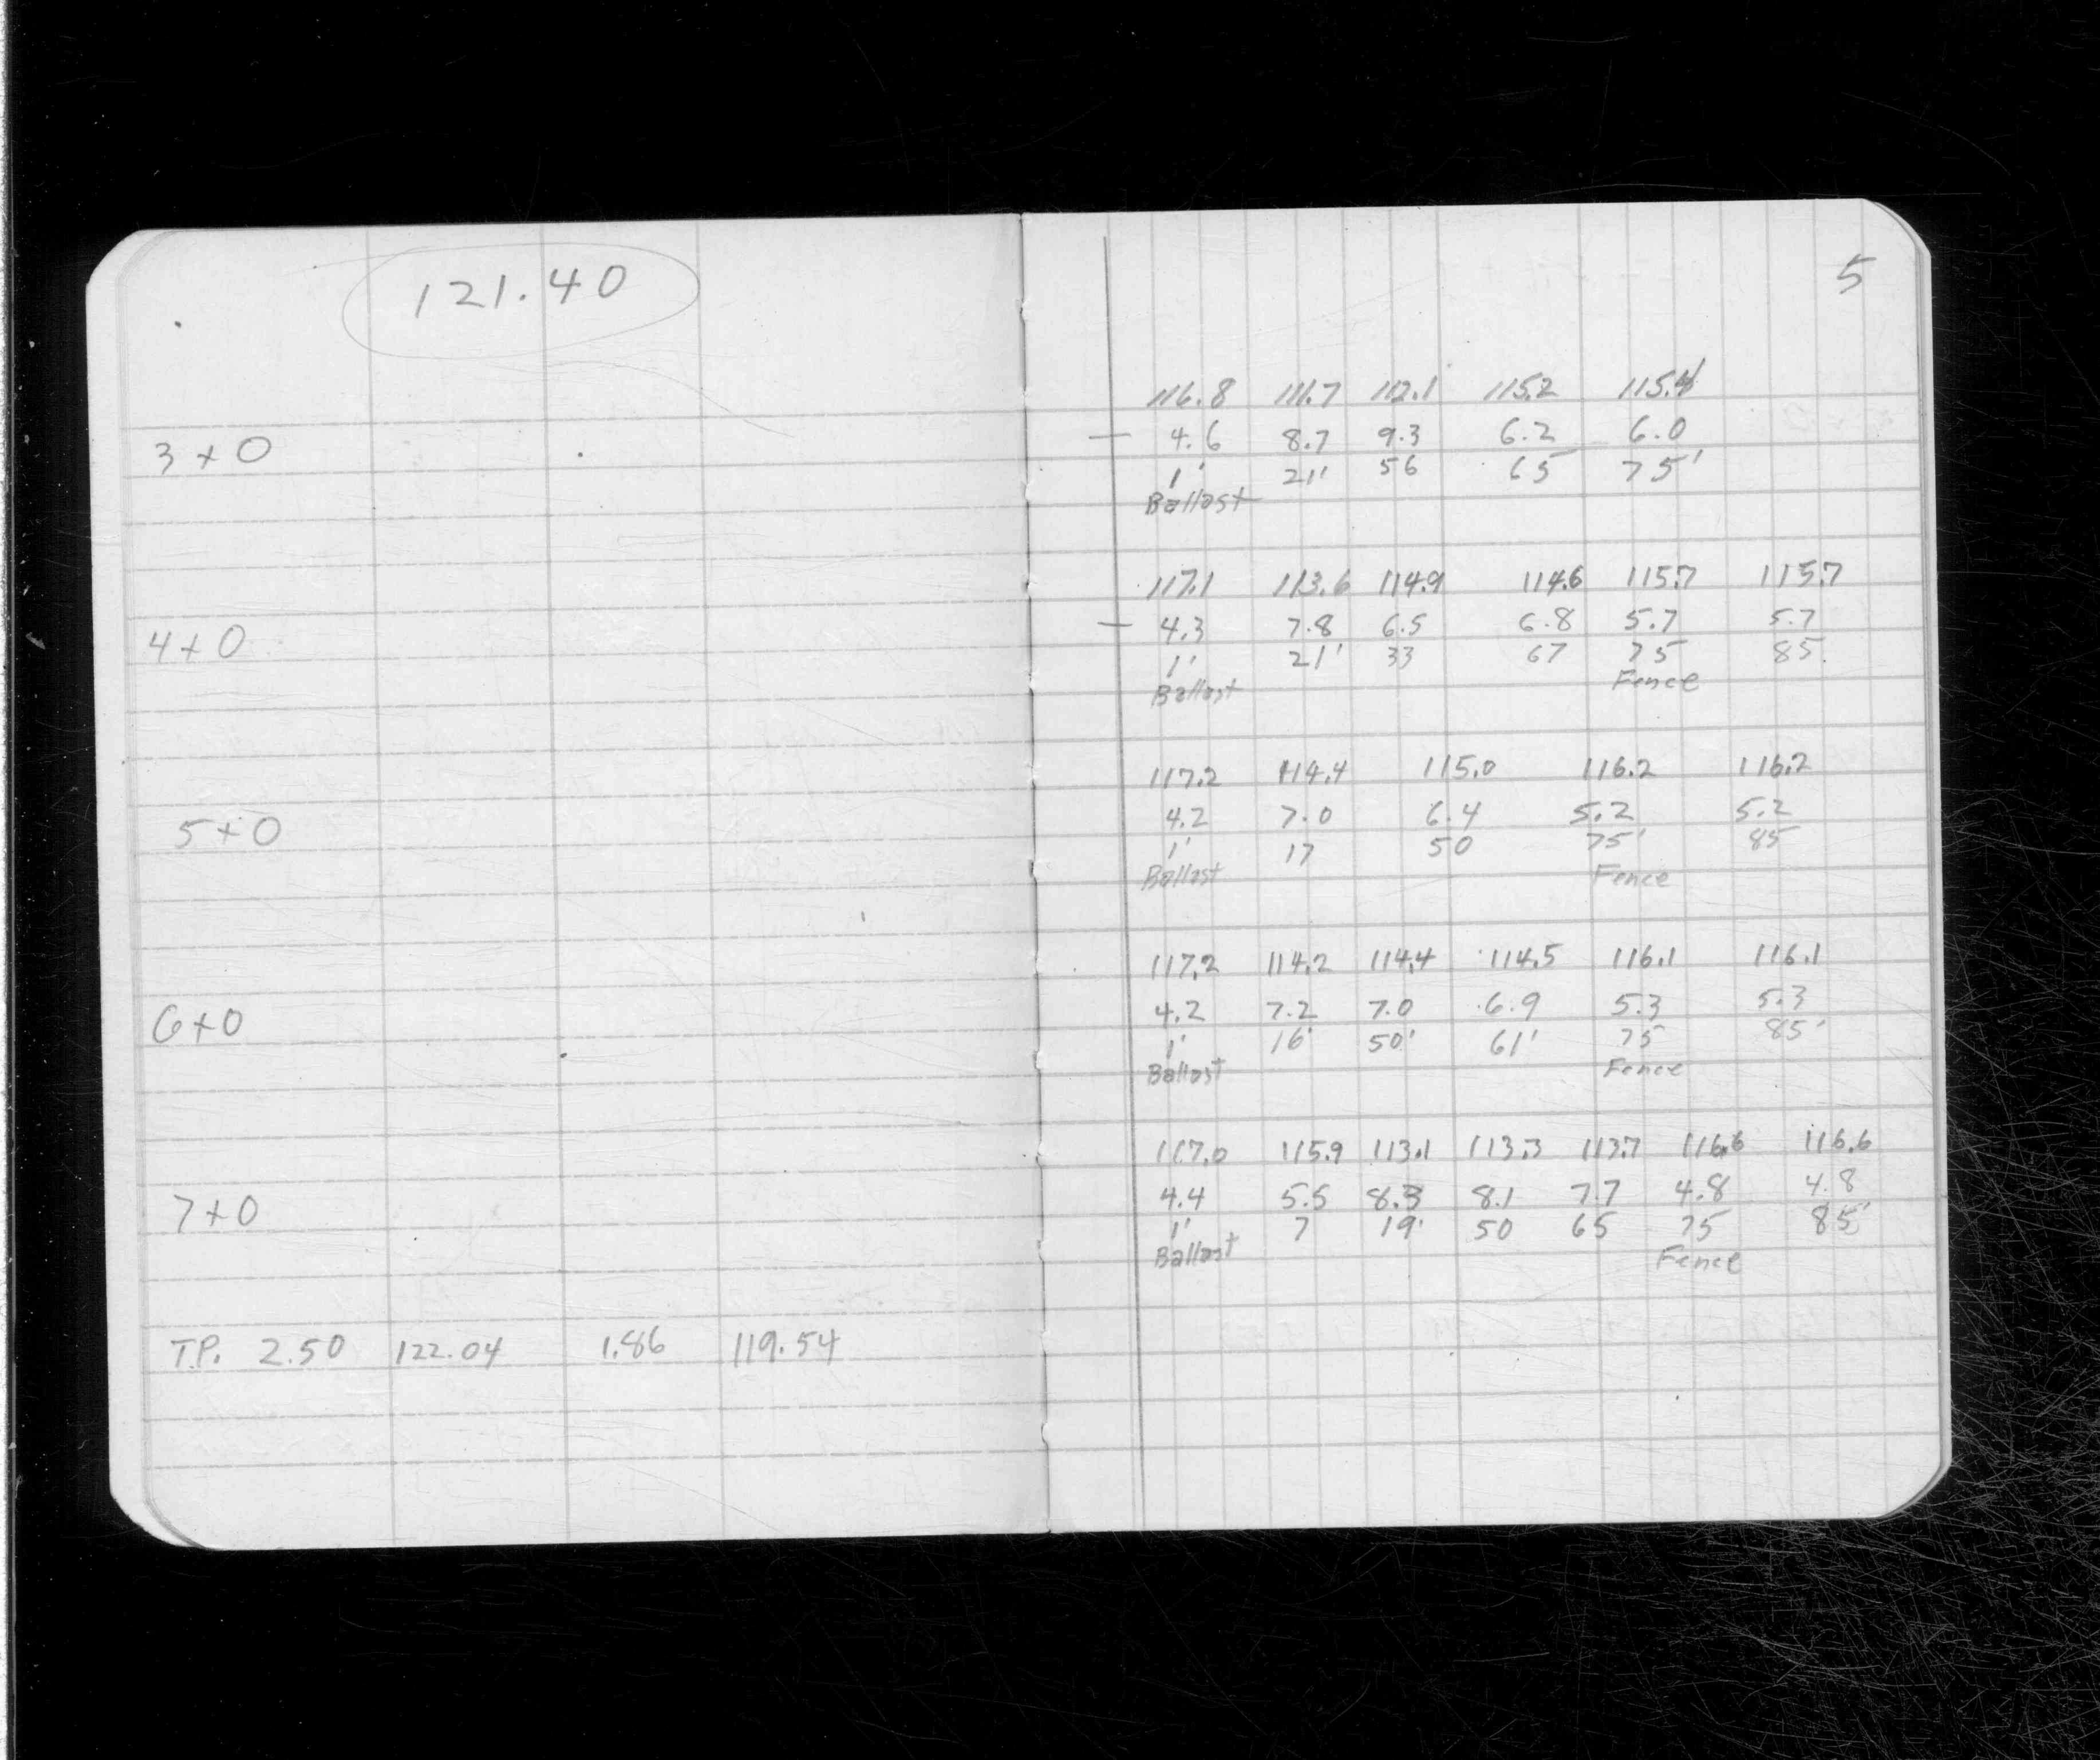 121.40
5
116.8 111.7 112.1 115.2 115.4
3+0
4.6 8.7 9.3 6.2 6.0
1' 21' 56 65 75'
Ballast
117.1 113.6 114.9 114.6 115.7 115.7
4+0
4.3 7.8 6.5 6.8 5.7 5.7
1' 21' 33 67 75 85
Ballast Fence
117.2 114.4 115.0 116.2 116.2
5+0
4.2 7.0 6.4 5.2 5.2
1' 17 50 75' 85
Ballast Fence
117.2 114.2 114.4 114.5 116.1 116.1
6+0
4.2 7.2 7.0 6.9 5.3 5.3
1' 16' 50' 61' 75 85'
Ballast Fence
117.0 115.9 113.1 113.3 113.7 116.6 116.6
7+0
4.4 5.5 8.3 8.1 7.7 4.8 4.8
1' 7 19' 50 65 75 85'
Ballast Fence
T.P. 2.50 122.04 1.86 119.54